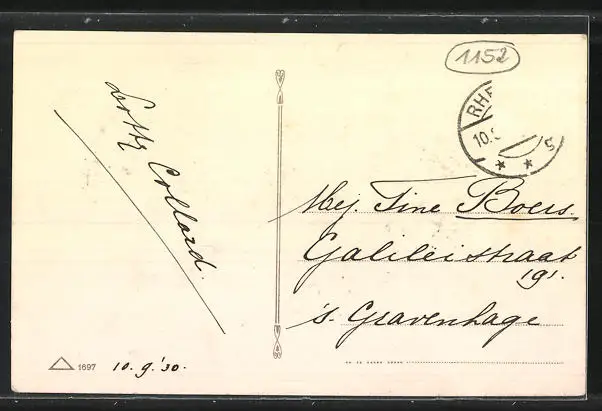 1152
RHE
10.9
5
Lotty Collard.
Mej. Tine Boers.
Galileïstraat
191.
's Gravenhage
1697
10.9.'30.